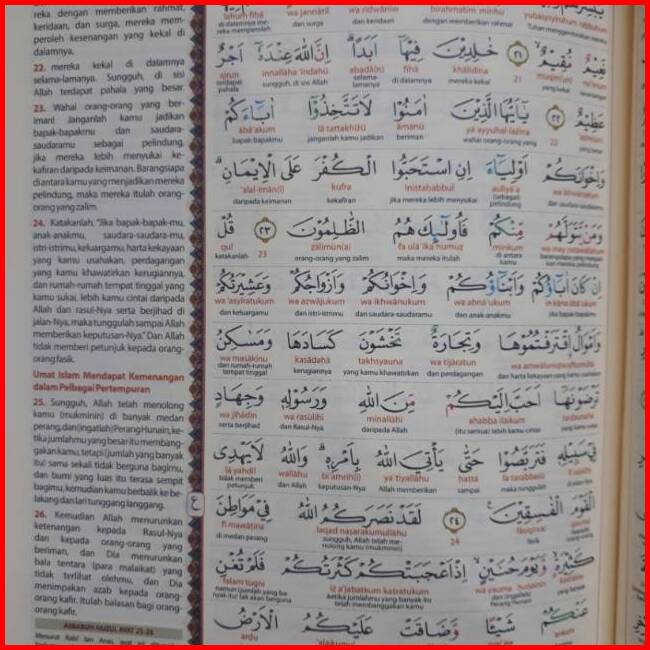 reka dengan memberikan rahmat,
keridaan, dan surga, mereka mem-
peroleh kesenangan yang kekal di
dalamnya,
22. mereka kekal di dalamnya
selama-lamanya. Sungguh, di sisi
Allah terdapat pahala yang besar.
23. Wahai orang-orang yang ber-
iman! Janganlah kamu jadikan
bapak-bapakmu dan saudara-
saudaramu sebagai pelindung,
jika mereka lebih menyukai ke-
kafiran daripada keimanan. Barangsiapa
di antara kamu yang menjadikan mereka
pelindung, maka mereka itulah orang-
orang yang zalim.
24. Katakanlah, "Jika bapak-bapak-mu,
anak-anakmu, saudara-saudara-mu,
istri-istrimu, keluargamu, harta kekayaan
yang kamu usahakan, perdagangan
yang kamu khawatirkan kerugiannya,
dan rumah-rumah tempat tinggal yang
kamu sukai, lebih kamu cintai daripada
Allah dan rasul-Nya serta berjihad di
jalan-Nya, maka tunggulah sampai Allah
memberikan keputusan-Nya." Dan Allah
tidak memberi petunjuk kepada orang-
orang fasik.
Umat Islam Mendapat Kemenangan
dalam Pelbagai Pertempuran
25. Sungguh, Allah telah menolong
kamu (mukminin) di banyak medan
perang, dan (ingatlah) Perang Hunain, ke-
tika jumlahmu yang besar itu membang-
gakan kamu, tetapi (jumlah yang banyak
itu) sama sekali tidak berguna bagimu,
dan bumi yang luas itu terasa sempit
bagimu, kemudian kamu berbalik ke be-
lakang dan lari tunggang langgang.
26. Kemudian Allah menurunkan
ketenangan kepada Rasul-Nya
dan kepada orang-orang yang
beriman, dan Dia menurunkan
bala tentara (para malaikat) yang
tidak terlihat olehmu, dan Dia
menimpakan azab kepada orang-
orang kafir. Itulah balasan bagi orang-
orang kafir.
ASBABUN NUZUL AYAT 25-26
lahum fīhā wa jannātil wa riḍwāniw birahmatim minhu
di dalamnya mereka memperoleh dan surga dan keridaan dengan memberikan rahmat
نَعِيْمٌ مُّقِيْمٌ ۙ ٢١ خٰلِدِيْنَ فِيْهَآ اَبَدًا ۗ اِنَّ اللّٰهَ عِنْدَهٗٓ اَجْرٌ
ajrun innallāha 'indahū abadā(n) fīhā khālidīna 21
terdapat pahala sungguh, di sisi Allah selama-lamanya di dalamnya mereka kekal
عَظِيْمٌ ٢٢ يٰٓاَيُّهَا الَّذِيْنَ اٰمَنُوْا لَا تَتَّخِذُوْٓا اٰبَاۤءَكُمْ
ābā'akum lā tattakhiżū āmanū yā ayyuhal-lażīna 22
bapak-bapakmu janganlah kamu jadikan beriman wahai orang-orang yang
وَاِخْوَانَكُمْ اَوْلِيَاۤءَ اِنِ اسْتَحَبُّوا الْكُفْرَ عَلَى الْاِيْمَانِ ۗ
'alal-īmān(i) kufra in(i)staḥabbul auliyā'a wa ikhwānakum
daripada keimanan kekafiran jika mereka lebih menyukai (sebagai) pelindung dan saudara-saudaramu
وَمَنْ يَّتَوَلَّهُمْ مِّنْكُمْ فَاُولٰۤىِٕكَ هُمُ الظّٰلِمُوْنَ ٢٣ قُلْ
qul 23 ẓālimūn(a) fa ulā'ika humuẓ minkum wa may yatawallahum
katakanlah orang-orang yang zalim maka mereka itulah di antara kamu
اِنْ كَانَ اٰبَاۤؤُكُمْ وَاَبْنَاۤؤُكُمْ وَاِخْوَانُكُمْ وَاَزْوَاجُكُمْ وَعَشِيْرَتُكُمْ
wa 'asyīratukum wa azwājukum wa ikhwānukum wa abnā'ukum in kāna ābā'ukum
dan keluargamu dan istri-istrimu dan saudara-saudaramu dan anak-anakmu jika bapak-bapakmu
وَاَمْوَالُ ۨاقْتَرَفْتُمُوْهَا وَتِجَارَةٌ تَخْشَوْنَ كَسَادَهَا وَمَسٰكِنُ
wa masākinu kasādahā takhsyauna wa tijāratun
dan rumah-rumah tempat tinggal kerugiannya yang kamu khawatirkan dan perdagangan
تَرْضَوْنَهَآ اَحَبَّ اِلَيْكُمْ مِّنَ اللّٰهِ وَرَسُوْلِهٖ وَجِهَادٍ
wa jihādin wa rasūlihī minallāhi aḥabba ilaikum
serta berjihad dan Rasul-Nya daripada Allah (itu semua) lebih kamu cintai
فِيْ سَبِيْلِهٖ فَتَرَبَّصُوْا حَتّٰى يَأْتِيَ اللّٰهُ بِاَمْرِهٖ ۗ وَاللّٰهُ لَا يَهْدِى
lā yahdil wallāhu bi'amrih(ī) ya'tiyallāhu ḥattā fa tarabbaṣū fī sabīlihī
tidak memberi petunjuk dan Allah keputusan-Nya Allah memberikan sampai maka tunggulah
الْقَوْمَ الْفٰسِقِيْنَ ࣖ ٢٤ لَقَدْ نَصَرَكُمُ اللّٰهُ فِيْ مَوَاطِنَ
fī mawāṭina laqad naṣarakumullāhu 24
di medan perang sungguh, Allah telah menolong kamu (mukminin)
كَثِيْرَةٍ ۙ وَّيَوْمَ حُنَيْنٍ ۙ اِذْ اَعْجَبَتْكُمْ كَثْرَتُكُمْ فَلَمْ تُغْنِ
falam tugni iż a'jabatkum kaśratukum wa yauma ḥunainin
ketika jumlahmu yang banyak itu membanggakan kamu
عَنْكُمْ شَيْـًٔا وَّضَاقَتْ عَلَيْكُمُ الْاَرْضُ
arḍu 'alaikumul